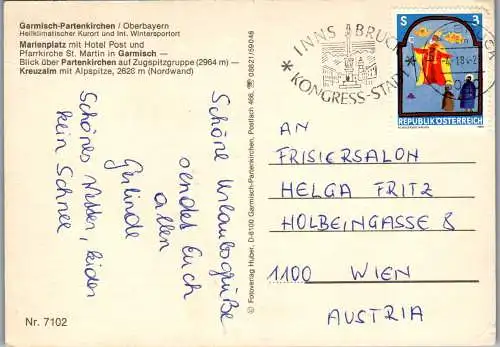 Garmisch-Partenkirchen / Oberbayern
Heilklimatischer Kurort und Int. Wintersportort
Marienplatz mit Hotel Post und
Pfarrkirche St. Martin in Garmisch —
Blick über Partenkirchen auf Zugspitzgruppe (2964 m) —
Kreuzalm mit Alpspitze, 2628 m (Nordwand)
Schöne Urlaubsgrüße
sendet Euch
allen
Gerlinde
Schönes Wetter, leider
kein Schnee
Nr. 7102
© Fotoverlag Huber, D-8100 Garmisch-Partenkirchen, Postfach 466, ☎ 08821/59046
INNSBRUCK
* KONGRESS-STADT *
S 3
REPUBLIK ÖSTERREICH
AN
FRISIERSALON
HELGA FRITZ
HOLBEINGASSE 8
1100 WIEN
AUSTRIA